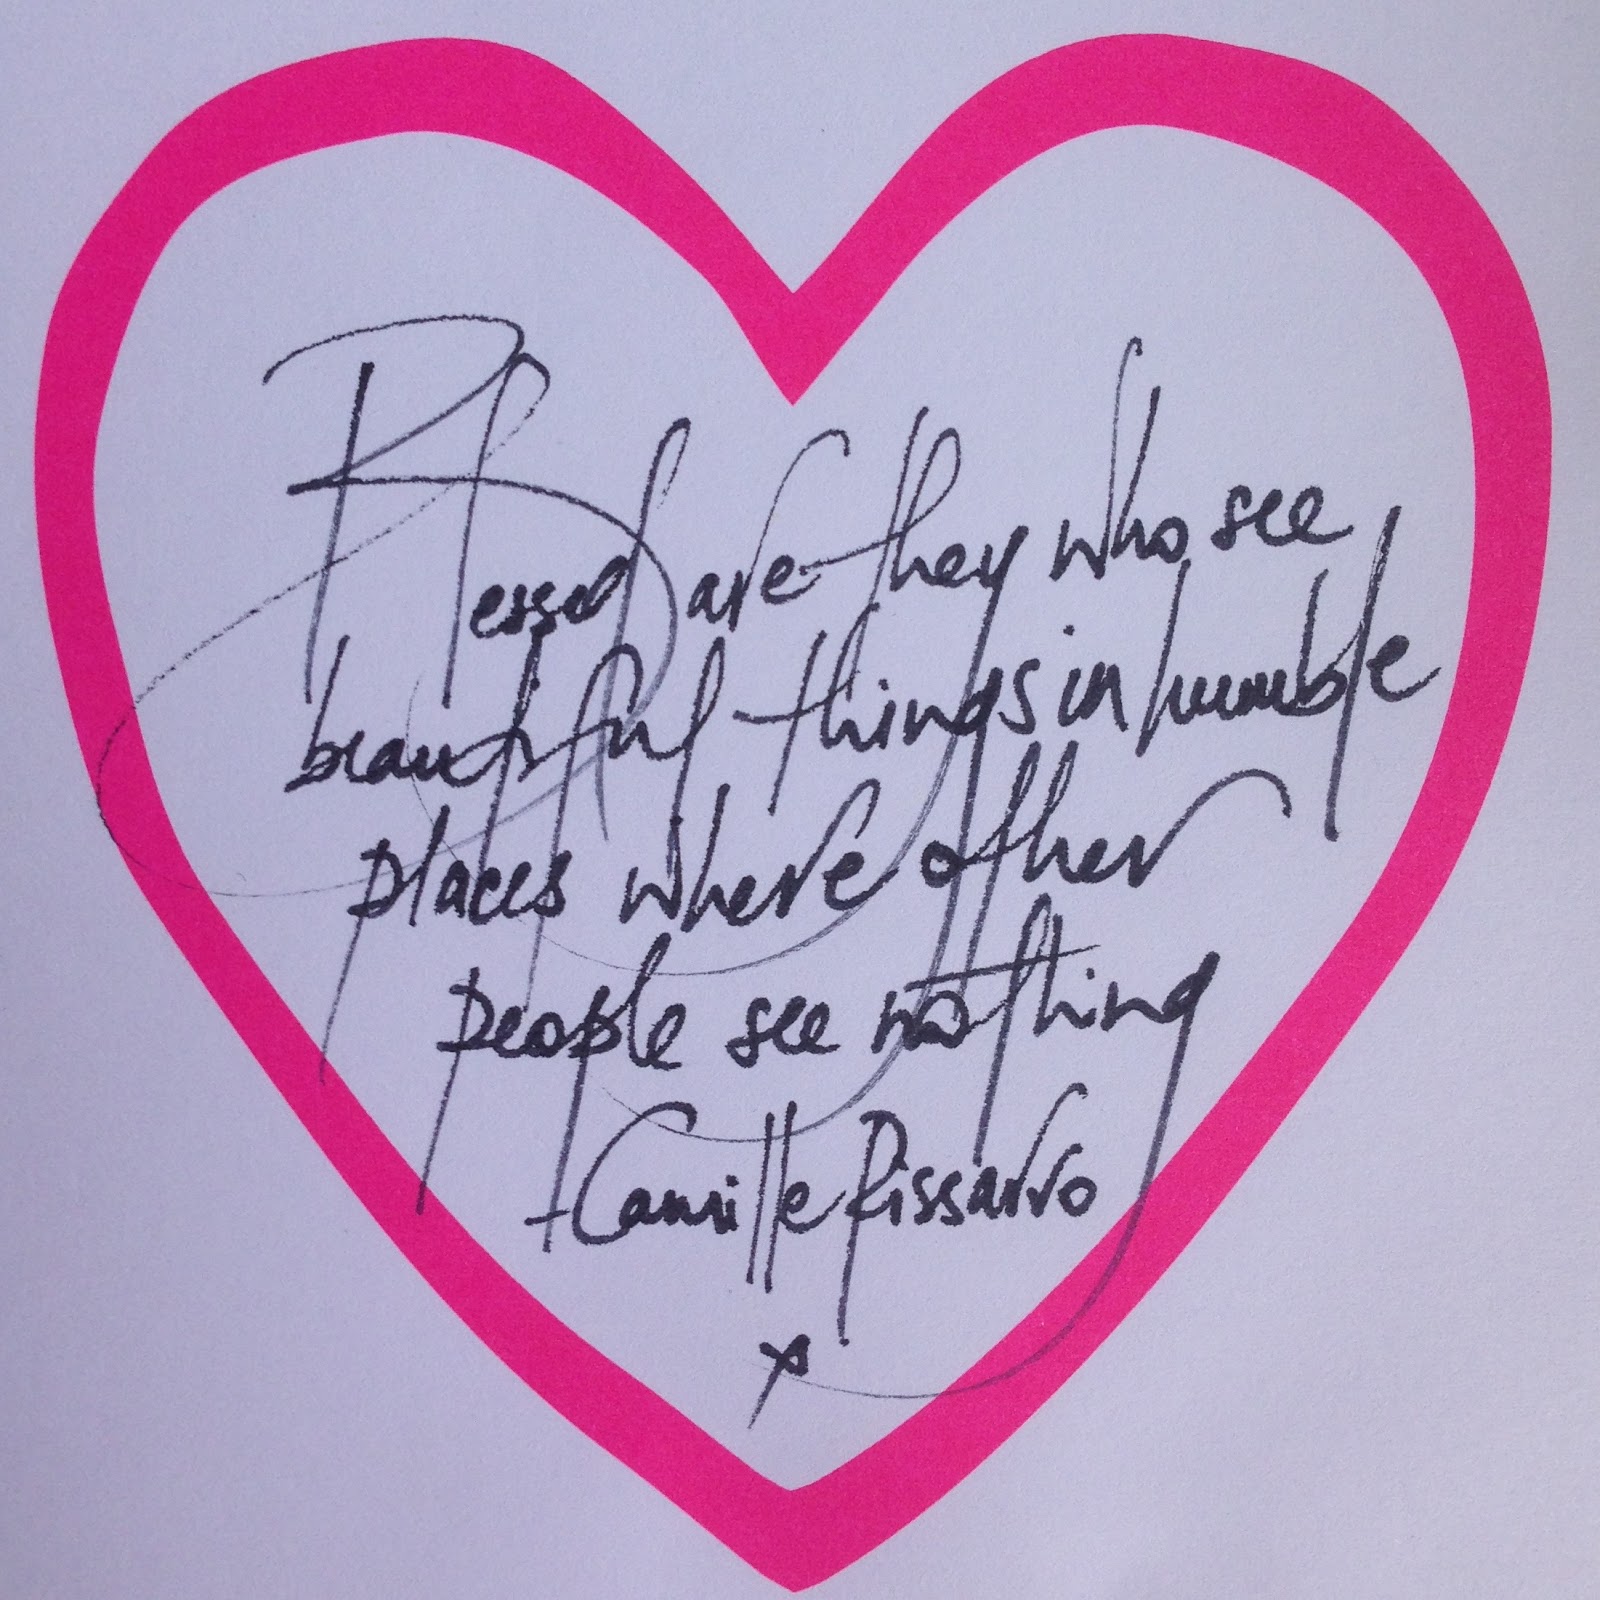 Blessed are they who see
beautiful things in humble
places where other
people see nothing
- Camille Pissarro
x